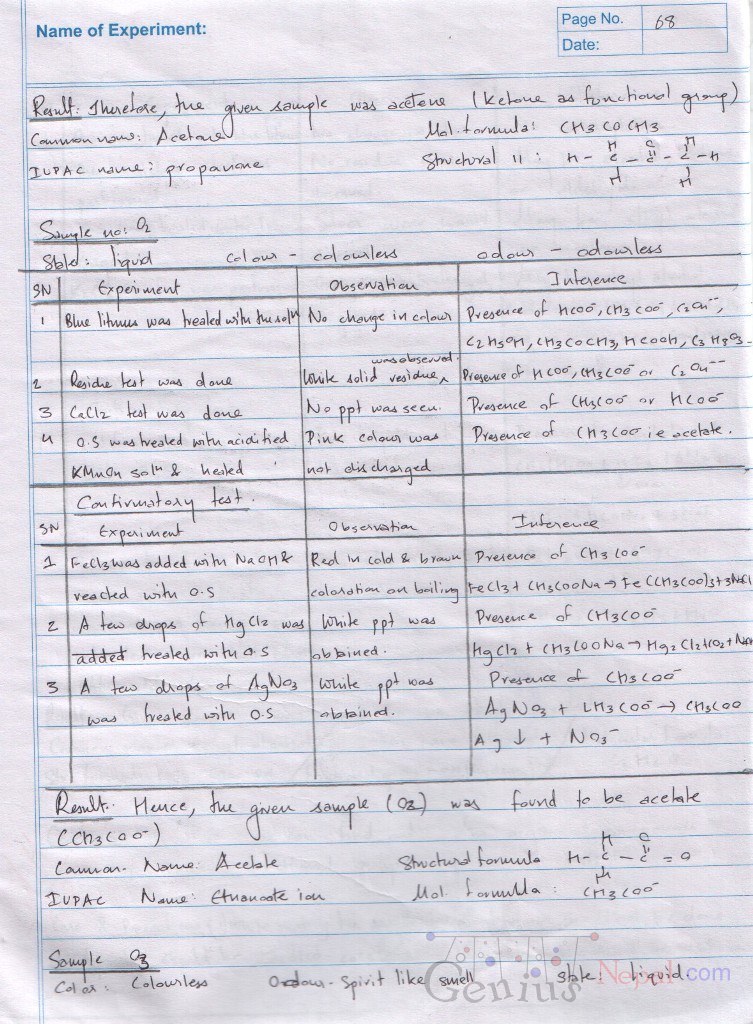 Name of Experiment:
Page No. 68
Date:
Result: Therefore, the given sample was acetone (ketone as functional group)
Common name: Acetone Mol. formula: CH3 CO CH3
IUPAC name: propanone Structural 11 : H - C - C - C - H
Sample no: O2
State: liquid colour - colourless odour - odourless
SN Experiment Observation Inference
1 Blue litmus was treated with the soln No change in colour Presence of HCOO-, CH3COO-, C2O4--,
C2H5OH, CH3COCH3, HCOOH,
2 Residue test was done White solid residue was observed. Presence of HCOO-, CH3COO- or C2O4--
3 CaCl2 test was done No ppt was seen. Presence of CH3COO- or HCOO-
4 O.S was treated with acidified Pink colour was Presence of CH3COO- i.e acetate.
KMnO4 soln & heated not discharged
Confirmatory test.
SN Experiment Observation Inference
1 FeCl3 was added with NaOH & Red in cold & brown Presence of CH3COO-
reacted with O.S coloration on boiling FeCl3 + CH3COONa → Fe(CH3COO)3 + 3NaCl
2 A few drops of HgCl2 was White ppt was Presence of CH3COO-
added treated with O.S obtained. HgCl2 + CH3COONa → Hg2Cl2 + CO2 +
3 A few drops of AgNO3 White ppt was Presence of CH3COO-
was treated with O.S obtained. AgNO3 + CH3COO- → CH3COO
Ag ↓ + NO3-
Result: Hence, the given sample (O2) was found to be acetate
(CH3COO-)
Common Name: Acetate Structural formula H - C - C = O
IUPAC Name: Ethanoate ion Mol. formula: CH3COO-
Sample O3
Color: Colourless Odour - Spirit like smell state: liquid.
Genius Nepal.com